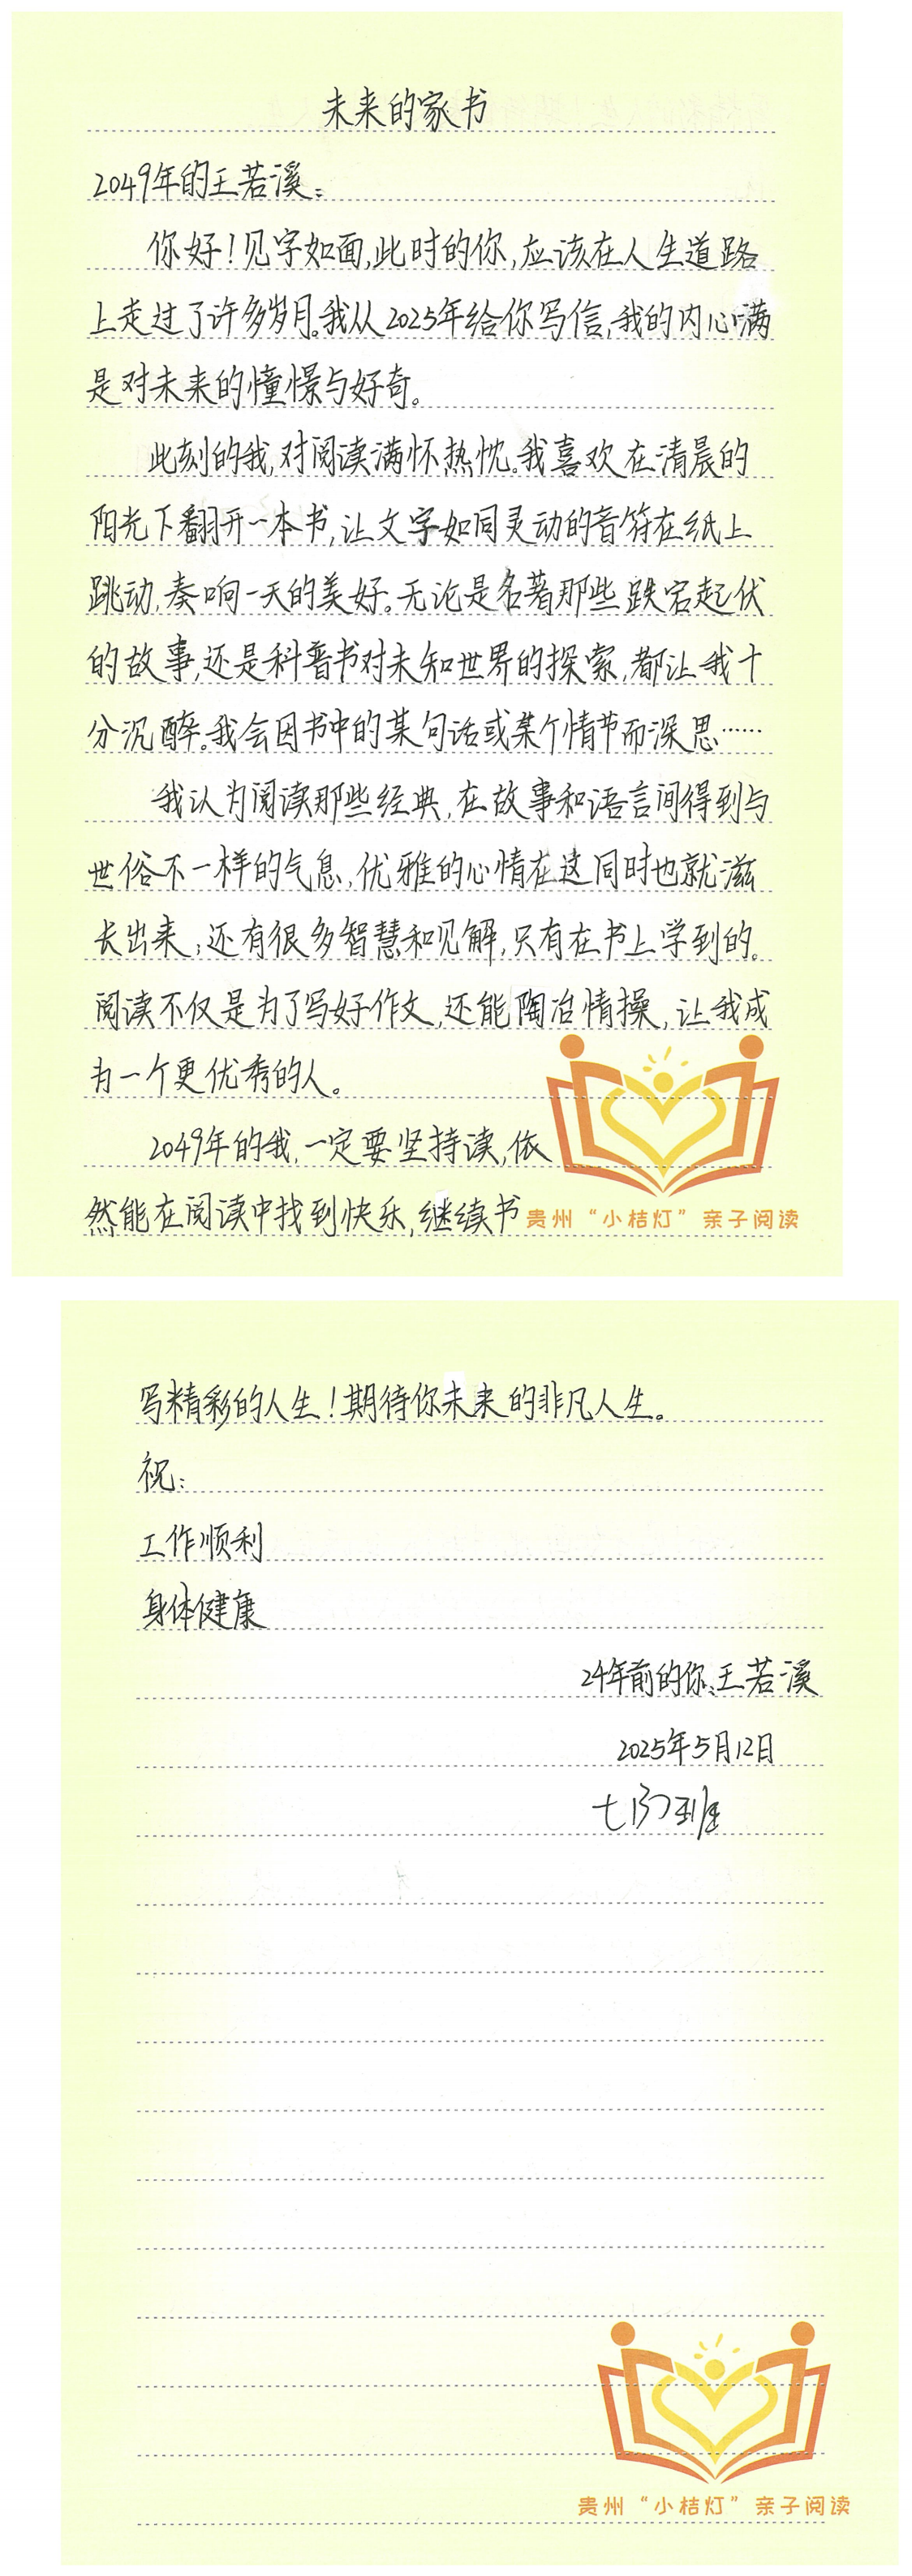 未来的家书
2049年的王若溪：
你好！见字如面，此时的你，应该在人生道路
上走过了许多岁月。我从2025年给你写信，我的内心满
是对未来的憧憬与好奇。
此刻的我，对阅读满怀热忱。我喜欢在清晨的
阳光下翻开一本书，让文字如同灵动的音符在纸上
跳动，奏响一天的美好。无论是名著那些跌宕起伏
的故事，还是科普书对未知世界的探索，都让我十
分沉醉。我会因书中的某句话或某个情节而深思……
我认为阅读那些经典，在故事和语言间得到与
世俗不一样的气息，优雅的心情在这同时也就滋
长出来；还有很多智慧和见解，只有在书上学到的。
阅读不仅是为了写好作文，还能陶冶情操，让我成
为一个更优秀的人。
2049年的我，一定要坚持读，依
然能在阅读中找到快乐，继续书
贵州“小桔灯”亲子阅读
写精彩的人生！期待你未来的非凡人生。
祝：
工作顺利
身体健康
24年前的你、王若溪
2025年5月12日
七班
贵州“小桔灯”亲子阅读